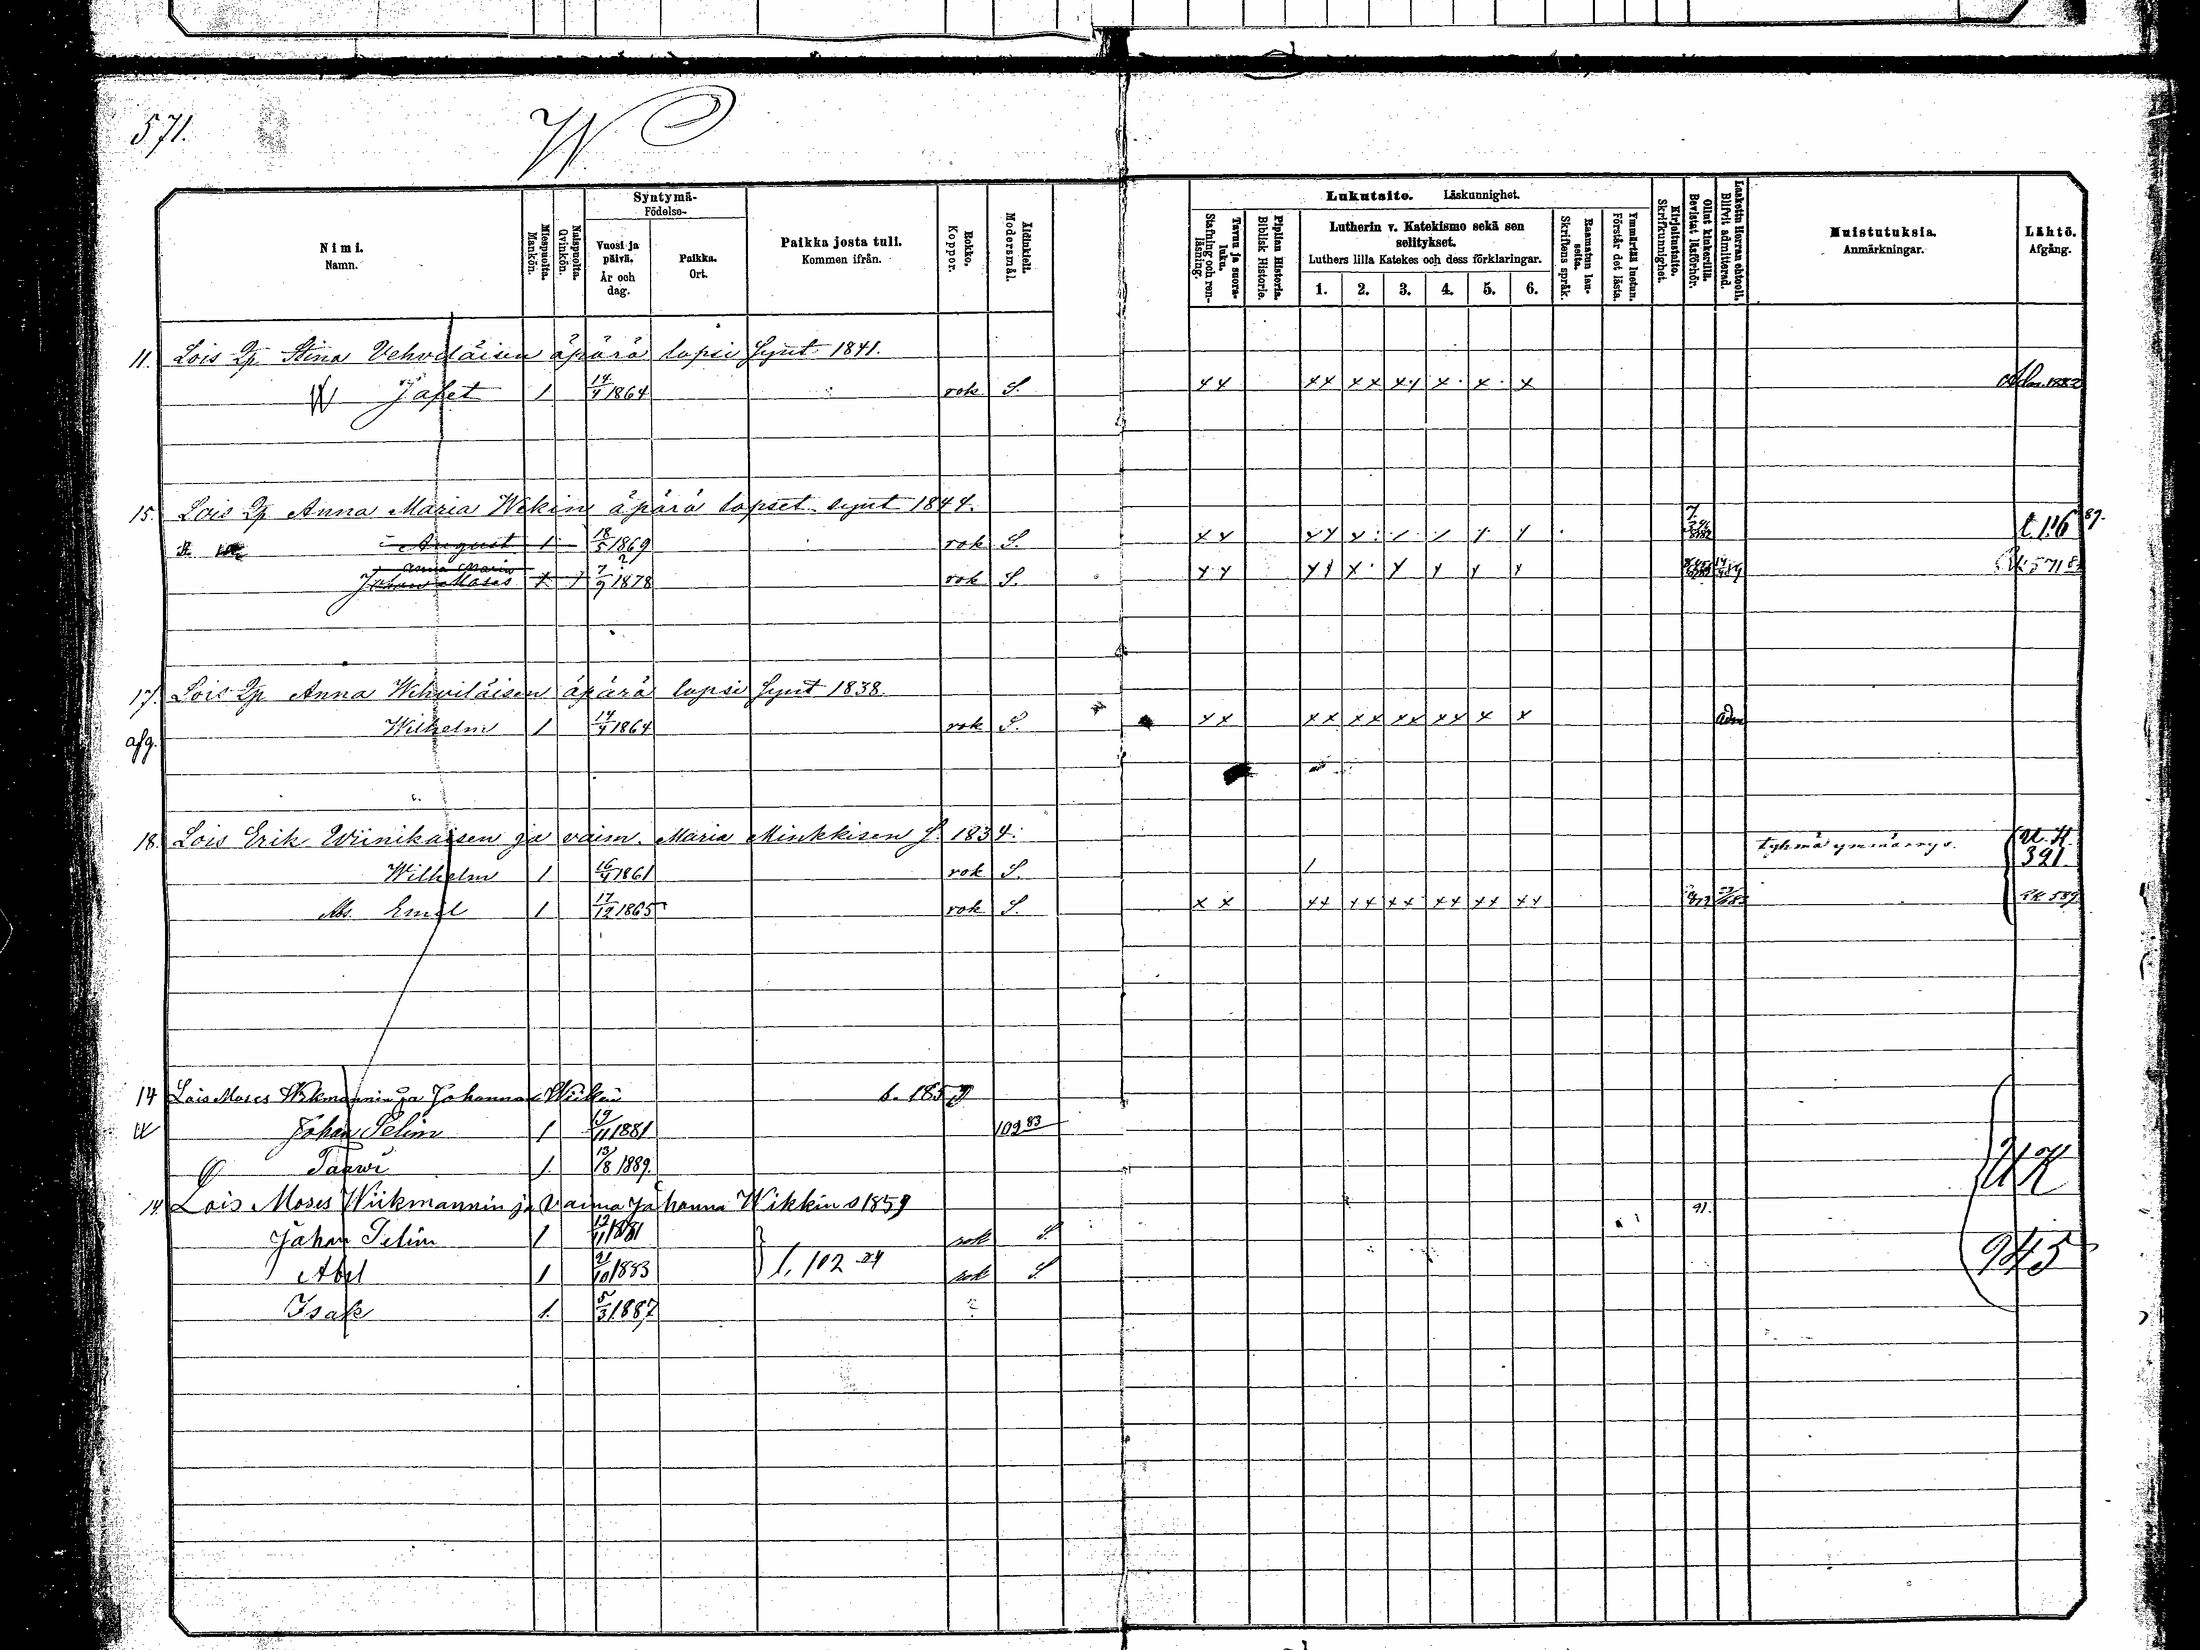 571.
W
Nimi.
Namn.
Miespuolta.
Mankön.
Naispuolta.
Qvinkön.
Syntymä-
Födelse-
Vuosi ja päivä.
År och dag.
Paikka.
Ort.
Paikka josta tuli.
Kommen ifrån.
Rokko.
Koppor.
Äidinkieli.
Modersmål.
Tavuu ja suora-luku.
Stafning och ren-läsning.
Piplian Historia.
Biblisk Historie.
Lukutaito. Läskunnighet.
Lutherin v. Katekismo sekä sen selitykset.
Luthers lilla Katekes och dess förklaringar.
1. 2. 3. 4. 5. 6.
Raamatun lau-seita.
Skriftens språk.
Ymmärtää luetun.
Förstår det lästa.
Kirjoitustaito.
Skrifkunnighet.
Ollut kinkerillä.
Bevistat läsförhör.
Laskettu Herran ehtooll.
Blifvit admitterad.
Muistutuksia.
Anmärkningar.
Lähtö.
Afgång.
11. Lois Lp. Stina Vehviläisen äpärä lapsi synt 1841.
Jafet 1 14/4 1864 rok S. xx xx xx xx x. x. x Adm. 1882
15. Lois Lp Anna Maria Wekin äpärä lapset synt 1844.
August 1 18/5 1869 rok S. l. 116 89.
Anna Maria
Johan Moses 7/9 1878 rok S. 571
17. Lois Lp Anna Wehviläisen äpärä lapsi synt 1838
afg. Wilhelm 1 14/4 1864 rok S. xx xx xx xx xx x x adm
18. Lois Erik Wiinikaisen ja vaim. Maria Minkkisen s. 1834.
tyhmä ymmärrys. U.K. 391
Wilhelm 1 16/4 1861 rok S. 1
Emil 1 17/12 1865 rok S. xx xx xx xx xx xx xx 589
14 Lois Moses Wikmannin ja Johanna Wikin s. 1859
Johan Selim 1 19/11 1881 109 83
Taawi 1. 13/8 1889.
UK 945
14 Lois Moses Wiikmannin ja Vaimo Johanna Wikkin s 1859 91.
Johan Selim 1 12/11 1881 rok S.
Abel 1 21/10 1883 l. 102 84 rok S.
Isak 1. 5/3 1887